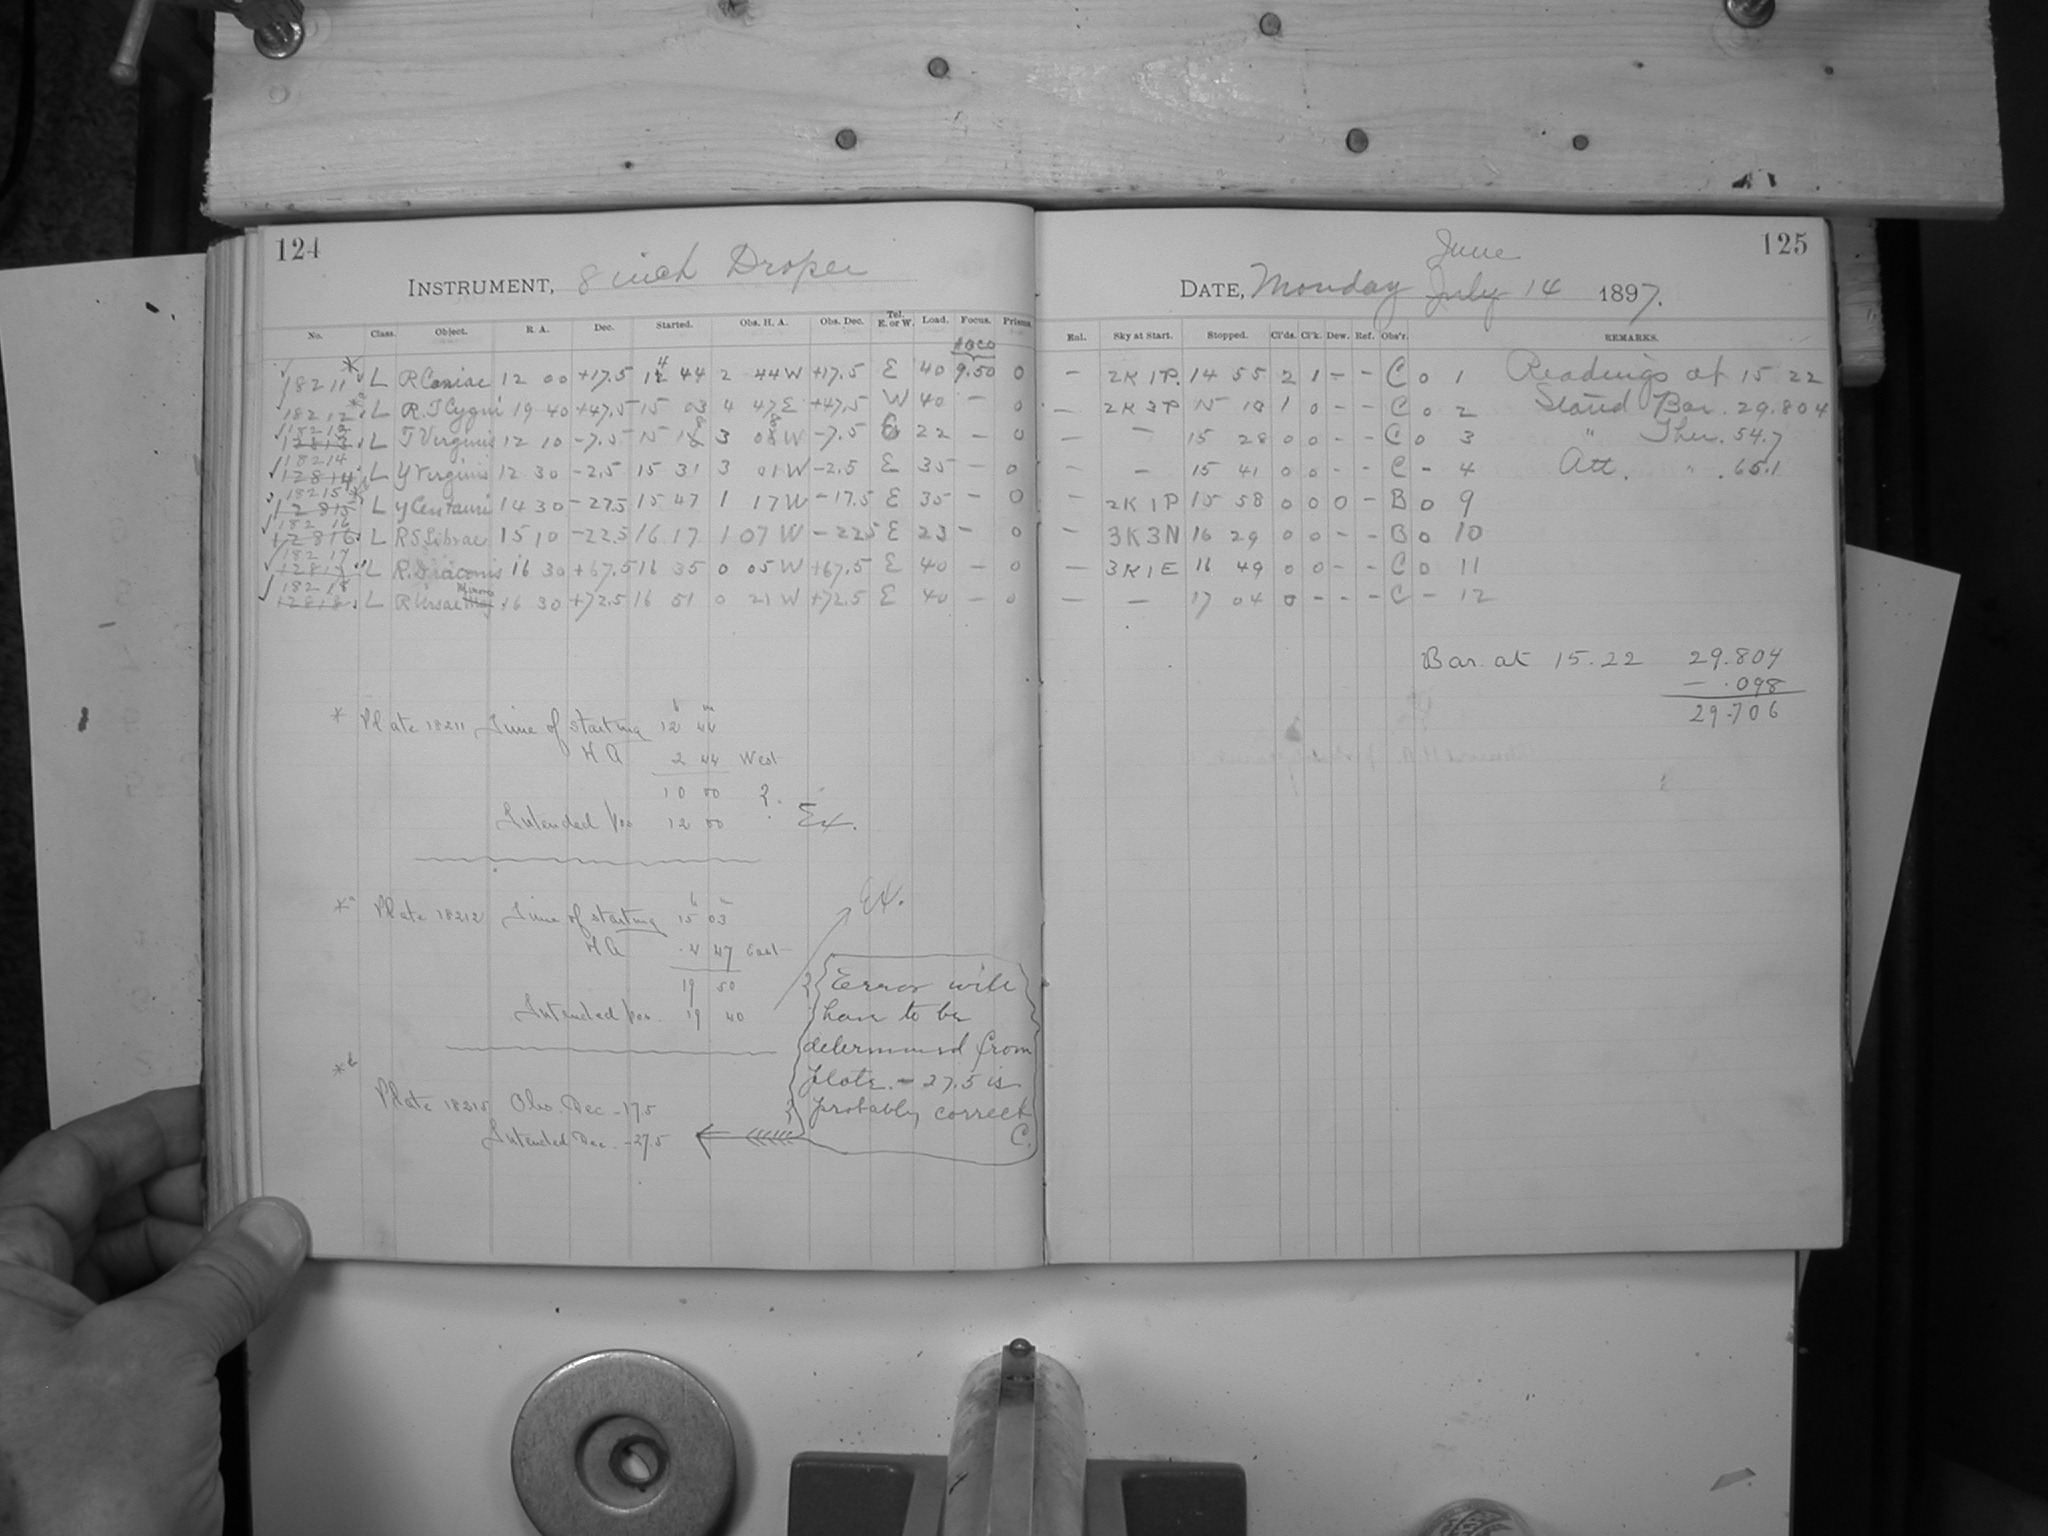 124
INSTRUMENT, 8 inch Draper
No. Class. Object. R. A. Dec. Started. Obs. H. A. Obs. Dec. Tel. E. or W. Load. Focus. Prisms
18211 * L R Comae 12 00 +17.5 14 44 2 44 W +17.5 E 40 9.50 0
18212 * L R.T Cygni 19 40 +47.5 15 03 4 47 E +47.5 W 40 - 0
18213
12813 L T Virginis 12 10 -7.5 15 18 3 08 W -7.5 E 22 - 0
18214
12814 L Y Virginis 12 30 -2.5 15 31 3 01 W -2.5 E 35 - 0
18215 *
12815 L Y Centauri 14 30 -27.5 15 47 1 17 W -17.5 E 35 - 0
18216
12816 L RS Librae 15 10 -22.5 16 17 1 07 W -22.5 E 23 - 0
18217
12817 L R. Draconis 16 30 +67.5 16 35 0 05 W +67.5 E 40 - 0
18218
12818 L R Ursae Minoris 16 30 +72.5 16 51 0 21 W +72.5 E 40 - 0
* Plate 18211 Time of starting 12h 44m
H A 2 44 West
10 00 ?
Intended pos 12 00 Ex.
*a Plate 18212 Time of starting 15h 03m
H A 4 47 East
19 50
Intended pos. 19 40
Ex.
*b
Plate 18215 Obs. Dec -17.5
Intended Dec. -27.5
Error will
have to be
determined from
plate. -27.5 is
probably correct
C.
125
June
DATE, Monday July 14 1897.
Enl. Sky at Start. Stopped. Cl'ds. Cl'k. Dew. Ref. Obs'r. REMARKS.
- 2K1P. 14 55 2 1 - - C 0 1 Readings at 15 22
- 2K3P 15 18 1 0 - - C 0 2 Stand Bar. 29.804
- - 15 28 0 0 - - C 0 3 " Ther. 54.7
- - 15 41 0 0 - - C - 4 Att. " .65.1
- 2K1P 15 58 0 0 0 - B 0 9
- 3K3N 16 29 0 0 - - B 0 10
- 3K1E 16 49 0 0 - - C 0 11
- - 17 04 0 - - - C - 12
Bar. at 15.22 29.804
- .098
29.706